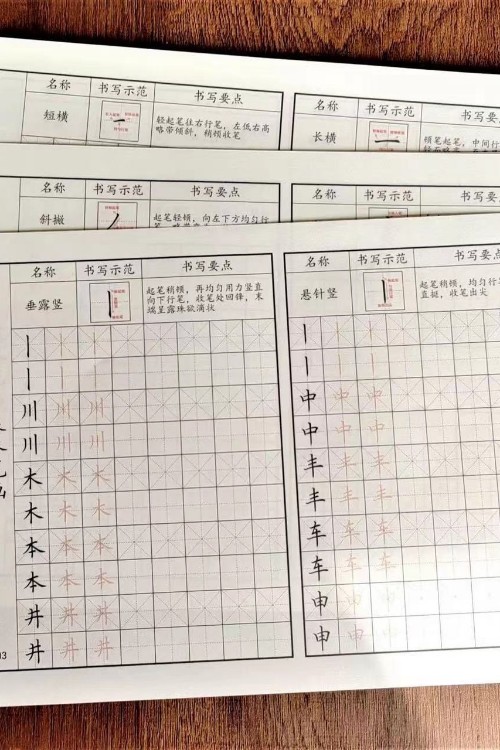 名称 书写示范 书写要点
短横
轻起笔往右行笔，左低右高
略带倾斜，稍顿收笔
名称 书写示范 书写要
长横
顿笔起笔，中间行
名称 书写示范 书写要点
斜撇
起笔轻顿，向左下方均匀行
名称 书写示范 书写要点
垂露竖
起笔稍顿，再均匀用力竖直
向下行笔，收笔处回锋，末
端呈露珠欲滴状
丨 丨 丨
丨 丨 丨
川 川 川
川 川 川
木 木 木
木 木 木
本 本 本
本 本 本
井 井 井
井 井 井
名称 书写示范 书写要点
悬针竖
起笔稍顿，均匀行
直挺，收笔出尖
丨 丨 丨
丨 丨 丨
中 中 中
中 中 中
丰 丰 丰
丰 丰 丰
车 车 车
车 车 车
申 申 申
申 申 申